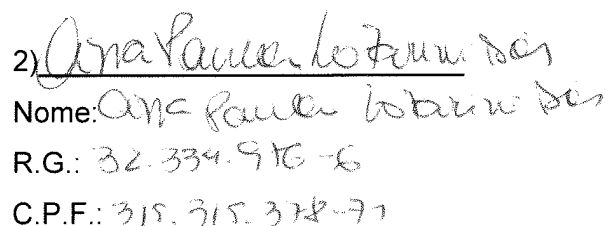 2) Ana Paula
Nome: Ana Paula
R.G.: 32.334.916-6
C.P.F.: 315.315.378-71